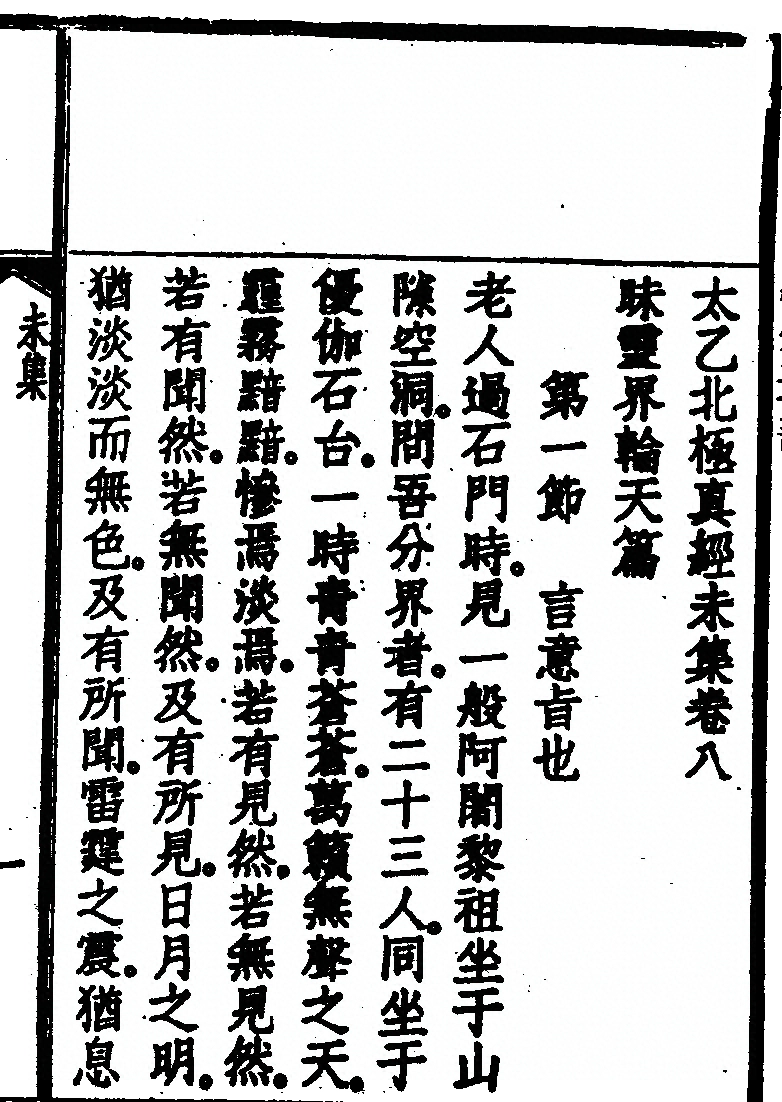 太乙北極真經未集卷八
昧靈界輪天篇
第一節　言意旨也
老人過石門時。見一般阿闍黎祖坐于山
隙空洞。問吾分界者。有二十三人。同坐于
優伽石台。一時青青蒼蒼。萬籟無聲之天。
霾霧黯黯。慘焉淡焉。若有見然。若無見然。
若有聞然。若無聞然。及有所見。日月之明。
猶淡淡而無色。及有所聞。雷霆之震。猶息
未集
一